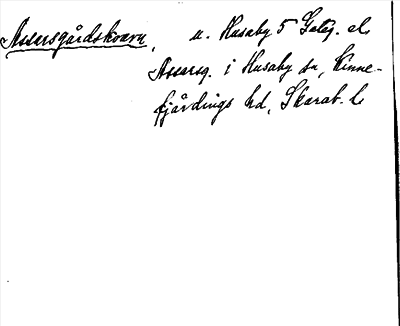 Assarsgårdskvarn, u. Husaby 5 Gatag. el.
Assarsg. i Husaby sn, Kinne-
fjärdings hd, Skarab. l.